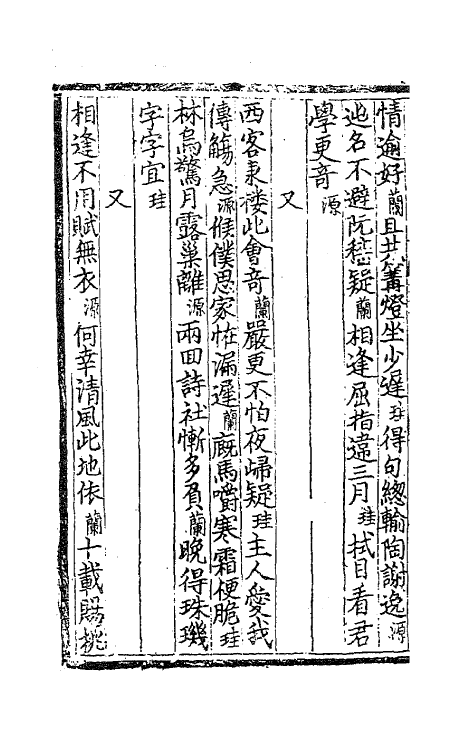 情逾好蘭且共篝燈坐少遲珪得句總輸陶謝逸源
逃名不避阮嵇疑蘭相逢屈指違三月珪拭目看君
學更竒源
又
西客東樓此會竒蘭嚴更不怕夜歸疑珪主人愛我
傳觴急源候僕思家恠漏遲蘭廐馬嚼寒霜梗脆珪
林烏驚月露巢離源兩回詩社慚多負蘭晩得珠璣
字字宜珪
又
相逢不用賦無衣源何幸清風此地依蘭十載賜桃